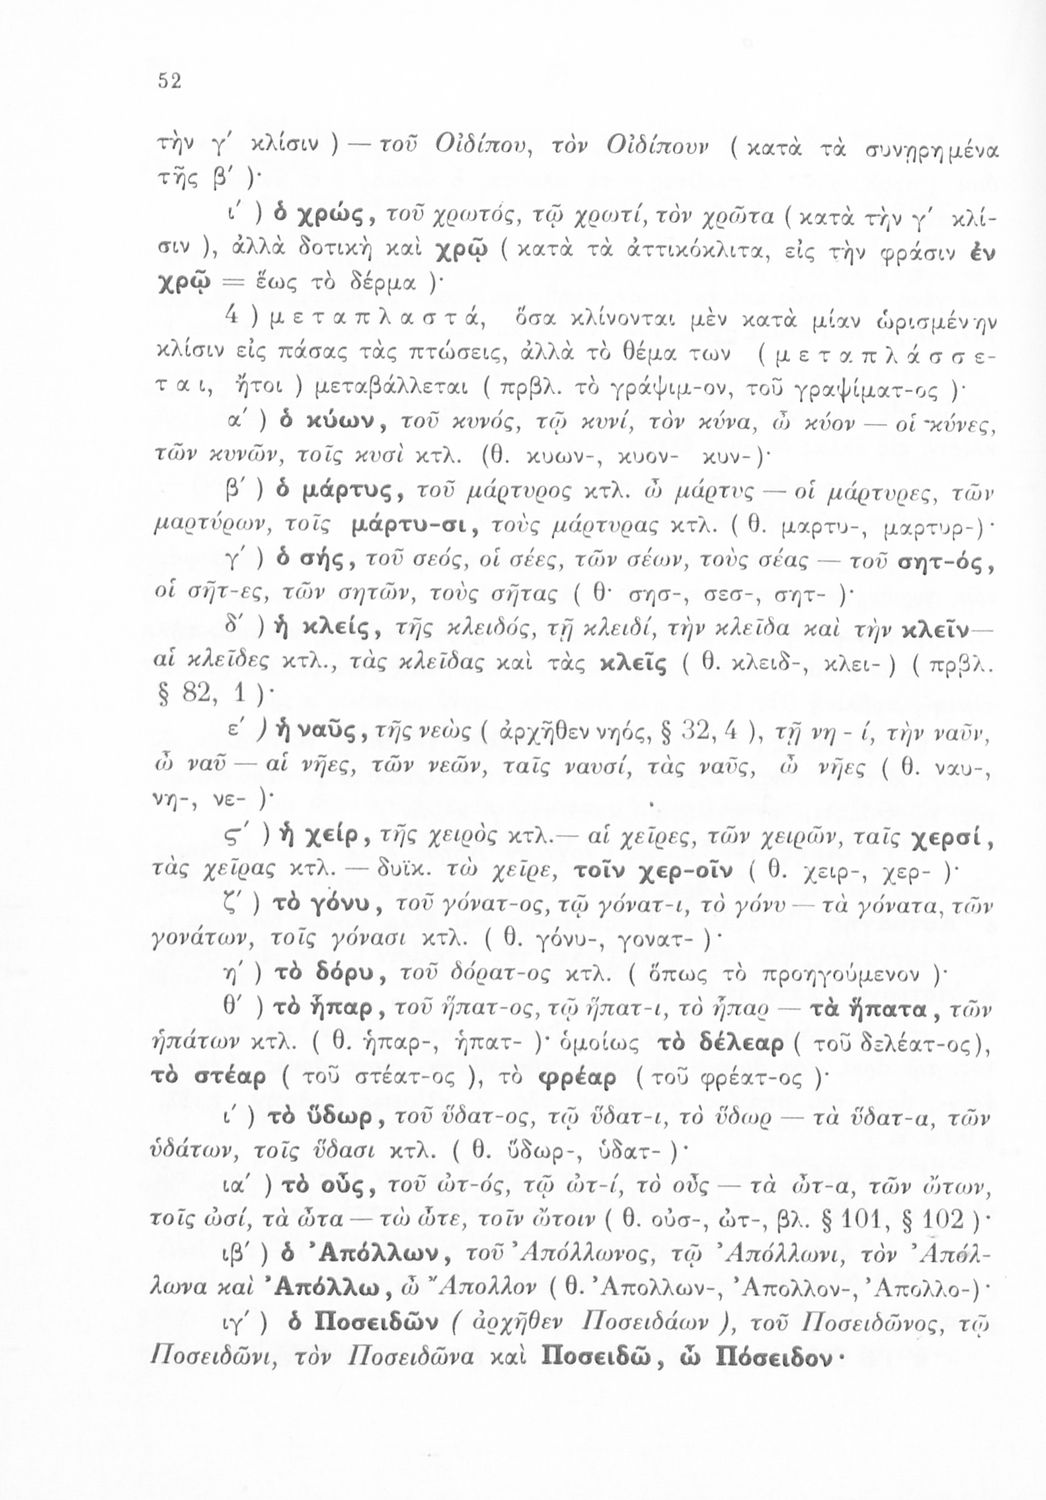 52
τὴν γ′ κλίσιν ) — τοῦ Οἰδίπου, τὸν Οἰδίπουν ( κατὰ τὰ συνῃρημένα
τῆς β′ )·
ι′ ) ὁ χρώς, τοῦ χρωτός, τῷ χρωτί, τὸν χρῶτα ( κατὰ τὴν γ′ κλί-
σιν ), ἀλλὰ δοτικὴ καὶ χρῷ ( κατὰ τὰ ἀττικόκλιτα, εἰς τὴν φράσιν ἐν
χρῷ = ἕως τὸ δέρμα )·
4 ) μ ε τ α π λ α σ τ ά, ὅσα κλίνονται μὲν κατὰ μίαν ὡρισμένην
κλίσιν εἰς πάσας τὰς πτώσεις, ἀλλὰ τὸ θέμα των ( μ ε τ α π λ ά σ σ ε-
τ α ι, ἤτοι ) μεταβάλλεται ( πρβλ. τὸ γράψιμ-ον, τοῦ γραψίματ-ος )·
α′ ) ὁ κύων, τοῦ κυνός, τῷ κυνί, τὸν κύνα, ὦ κύον — οἱ κύνες,
τῶν κυνῶν, τοῖς κυσὶ κτλ. (θ. κυων-, κυον- κυν-)·
β′ ) ὁ μάρτυς, τοῦ μάρτυρος κτλ. ὦ μάρτυς — οἱ μάρτυρες, τῶν
μαρτύρων, τοῖς μάρτυ-σι, τοὺς μάρτυρας κτλ. ( θ. μαρτυ-, μαρτυρ-)·
γ′ ) ὁ σής, τοῦ σεός, οἱ σέες, τῶν σέων, τοὺς σέας — τοῦ σητ-ός,
οἱ σῆτ-ες, τῶν σητῶν, τοὺς σῆτας ( θ· σησ-, σεσ-, σητ- )·
δ′ ) ἡ κλείς, τῆς κλειδός, τῇ κλειδί, τὴν κλεῖδα καὶ τὴν κλεῖν—
αἱ κλεῖδες κτλ., τὰς κλεῖδας καὶ τὰς κλεῖς ( θ. κλειδ-, κλει- ) ( πρβλ.
§ 82, 1 )·
ε′ ) ἡ ναῦς, τῆς νεὼς ( ἀρχῆθεν νηός, § 32, 4 ), τῇ νη - ί, τὴν ναῦν,
ὦ ναῦ — αἱ νῆες, τῶν νεῶν, ταῖς ναυσί, τὰς ναῦς, ὦ νῆες ( θ. ναυ-,
νη-, νε- )·
ς′ ) ἡ χείρ, τῆς χειρὸς κτλ.— αἱ χεῖρες, τῶν χειρῶν, ταῖς χερσί,
τὰς χεῖρας κτλ. — δυϊκ. τὼ χεῖρε, τοῖν χερ-οῖν ( θ. χειρ-, χερ- )·
ζ′ ) τὸ γόνυ, τοῦ γόνατ-ος, τῷ γόνατ-ι, τὸ γόνυ — τὰ γόνατα, τῶν
γονάτων, τοῖς γόνασι κτλ. ( θ. γόνυ-, γονατ- )·
η′ ) τὸ δόρυ, τοῦ δόρατ-ος κτλ. ( ὅπως τὸ προηγούμενον )·
θ′ ) τὸ ἧπαρ, τοῦ ἥπατ-ος, τῷ ἥπατ-ι, τὸ ἧπαρ — τὰ ἥπατα, τῶν
ἡπάτων κτλ. ( θ. ἡπαρ-, ἡπατ- )· ὁμοίως τὸ δέλεαρ ( τοῦ δελέατ-ος),
τὸ στέαρ ( τοῦ στέατ-ος ), τὸ φρέαρ ( τοῦ φρέατ-ος )·
ι′ ) τὸ ὕδωρ, τοῦ ὕδατ-ος, τῷ ὕδατ-ι, τὸ ὕδωρ — τὰ ὕδατ-α, τῶν
ὑδάτων, τοῖς ὕδασι κτλ. ( θ. ὕδωρ-, ὑδατ- )·
ια′ ) τὸ οὖς, τοῦ ὠτ-ός, τῷ ὠτ-ί, τὸ οὖς — τὰ ὦτ-α, τῶν ὤτων,
τοῖς ὠσί, τὰ ὦτα — τὼ ὦτε, τοῖν ὤτοιν ( θ. οὐσ-, ὠτ-, βλ. § 101, § 102 )·
ιβ′ ) ὁ Ἀπόλλων, τοῦ Ἀπόλλωνος, τῷ Ἀπόλλωνι, τὸν Ἀπόλ-
λωνα καὶ Ἀπόλλω, ὦ Ἄπολλον ( θ. Ἀπολλων-, Ἀπολλον-, Ἀπολλο-)·
ιγ′ ) ὁ Ποσειδῶν ( ἀρχῆθεν Ποσειδάων ), τοῦ Ποσειδῶνος, τῷ
Ποσειδῶνι, τὸν Ποσειδῶνα καὶ Ποσειδῶ, ὦ Πόσειδον·